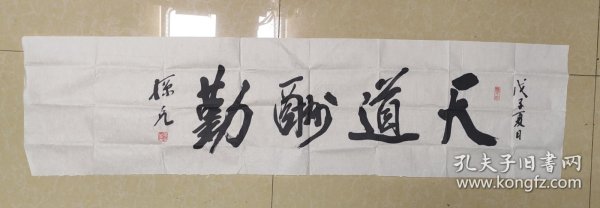 戊子夏日
天道酬勤
孔夫子旧書网
www.kongfz.com